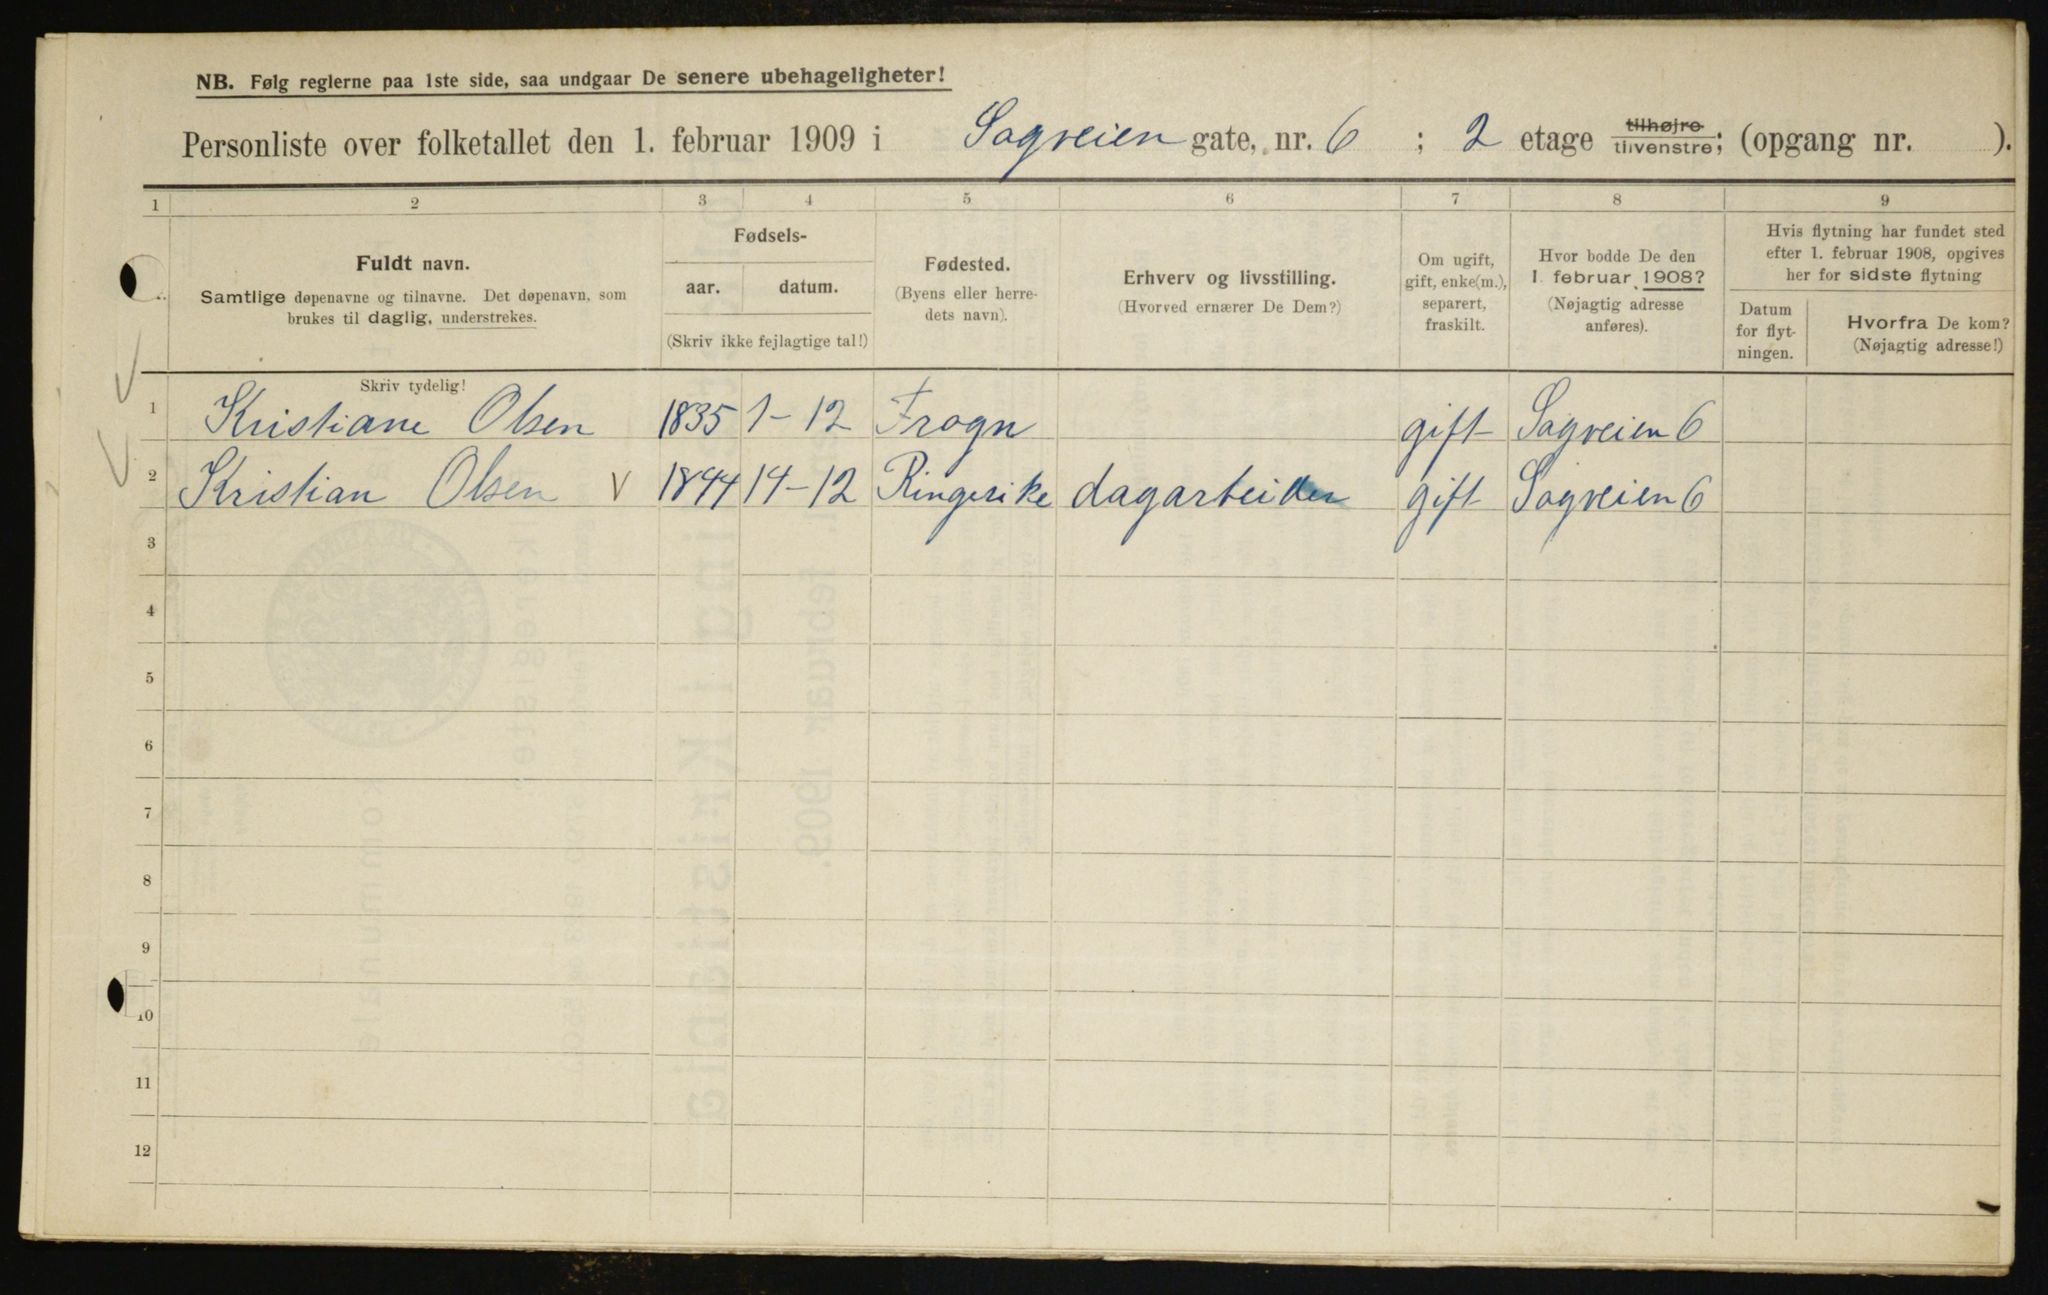 NB. Følg reglerne paa 1ste side, saa undgaar De senere ubehageligheter!
Personliste over folketallet den 1. februar 1909 i Sagveien gate, nr. 6 ; 2 etage tilhøjre tilvenstre; (opgang nr. ).
1 2 3 4 5 6 7 8 9
Fuldt navn.
Samtlige døpenavne og tilnavne. Det døpenavn, som
brukes til daglig, understrekes.
Fødsels-
aar. datum.
(Skriv ikke fejlagtige tal!)
Fødested.
(Byens eller herre-
dets navn).
Erhverv og livsstilling.
(Hvorved ernærer De Dem?)
Om ugift,
gift, enke(m.),
separert,
fraskilt.
Hvor bodde De den
1. februar 1908?
(Nøjagtig adresse
anføres).
Hvis flytning har fundet sted
efter 1. februar 1908, opgives
her for sidste flytning
Datum
for flyt-
ningen.
Hvorfra De kom?
(Nøjagtig adresse!)
Skriv tydelig!
1 Kristiane Olsen 1835 1-12 Frogn gift Sagveien 6
2 Kristian Olsen V 1844 14-12 Ringerike dagarbeider gift Sagveien 6
3
4
5
6
7
8
9
10
11
12